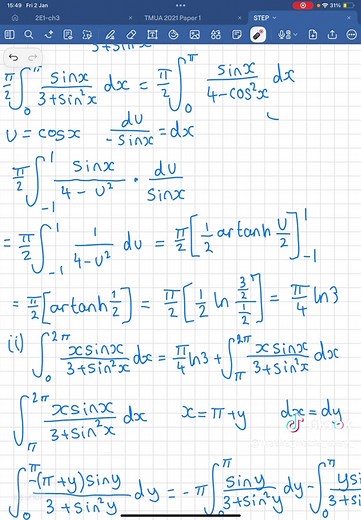 15:49 Fri 2 Jan 31%
2E1-ch3 TMUA 2021 Paper 1 STEP
3+sin²x
π/2 ∫₀^π sinx/(3+sin²x) dx = π/2 ∫₀^π sinx/(4-cos²x) dx
u = cosx du/-sinx = dx
π/2 ∫₋₁^1 sinx/(4-u²) · du/sinx
= π/2 ∫₋₁^1 1/(4-u²) du = π/2 [1/2 artanh u/2]₋₁^1
= π/2 [artanh 1/2] = π/2 [1/2 ln (3/2)/(1/2)] = π/4 ln3
ii) ∫₀^2π xsinx/(3+sin²x) dx = π/4 ln3 + ∫_π^2π xsinx/(3+sin²x) dx
∫_π^2π xsinx/(3+sin²x) dx x = π+y dx = dy
∫₀^π -(π+y)siny/(3+sin²y) dy = -π ∫₀^π siny/(3+sin²y) dy - ∫₀^π ysi